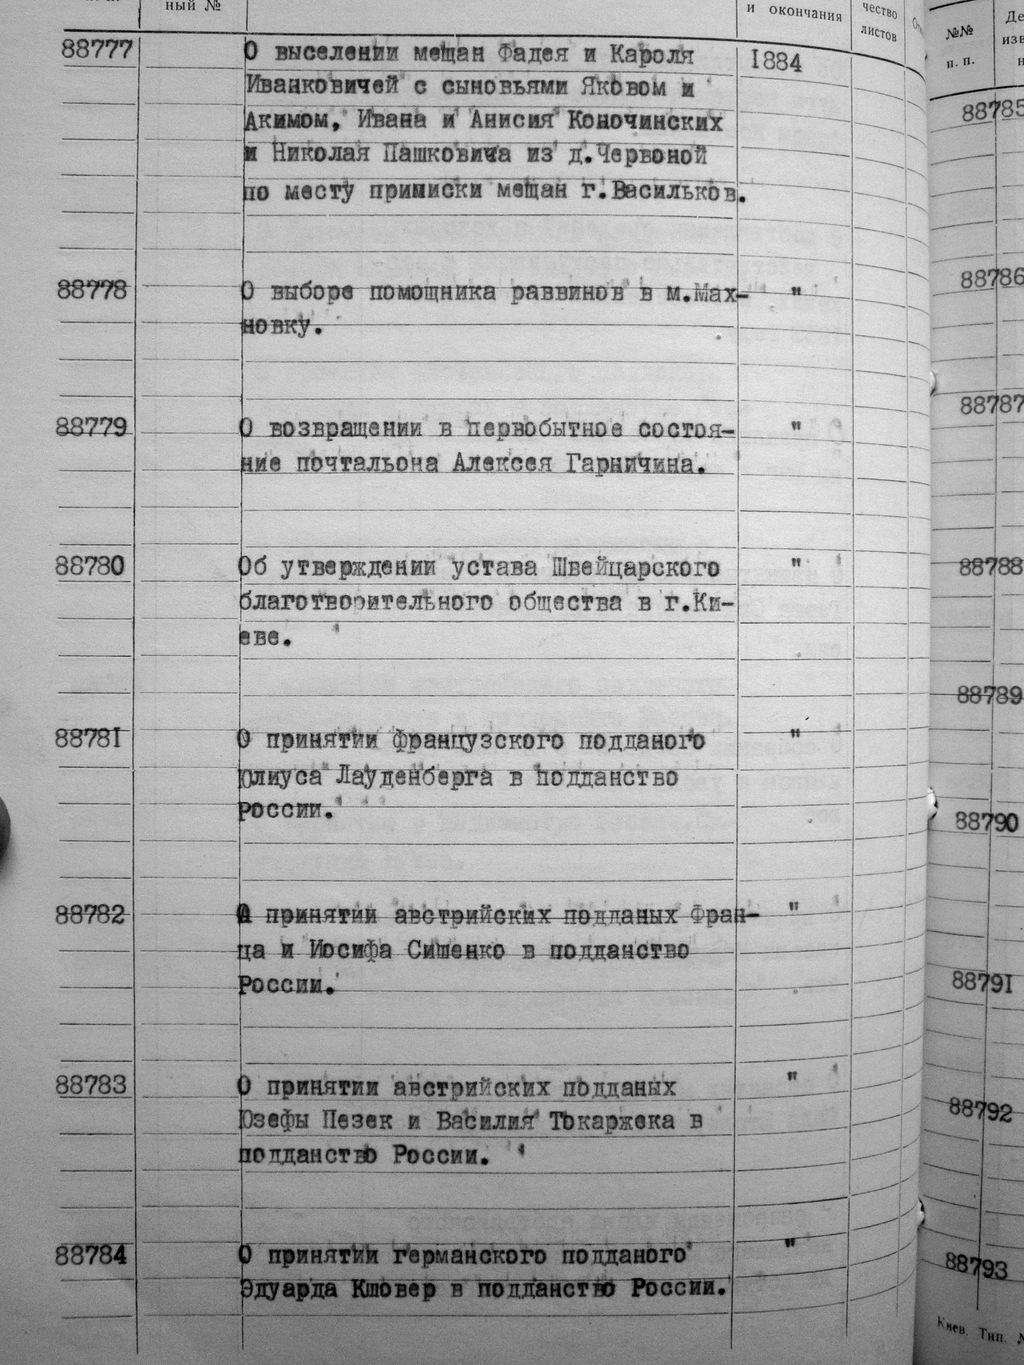 ный №
и окончания
чество
листов
88777 О выселении мещан Фадея и Кароля 1884
Иванковичей с сыновьями Яковом и
Акимом, Ивана и Анисия Коночинских
и Николая Пашковича из д.Червоной
по месту приписки мещан г.Васильков.
88778 О выборе помощника раввинов в м.Мах- "
новку.
88779 О возвращении в первобытное состоя- "
ние почтальона Алексея Гарничина.
88780 Об утверждении устава Швейцарского "
благотворительного общества в г.Ки-
еве.
88781 О принятии французского подданого "
Юлиуса Лауденберга в подданство
России.
88782 О принятии австрийских подданых Фран- "
ца и Иосифа Сишенко в подданство
России.
88783 О принятии австрийских подданых "
Юзефы Пезек и Василия Токаржека в
подданство России.
88784 О принятии германского подданого "
Эдуарда Кшовер в подданство России.
№№
п. п.
88785
88786
88787
88788
88789
88790
88791
88792
88793
Киев. Тип.